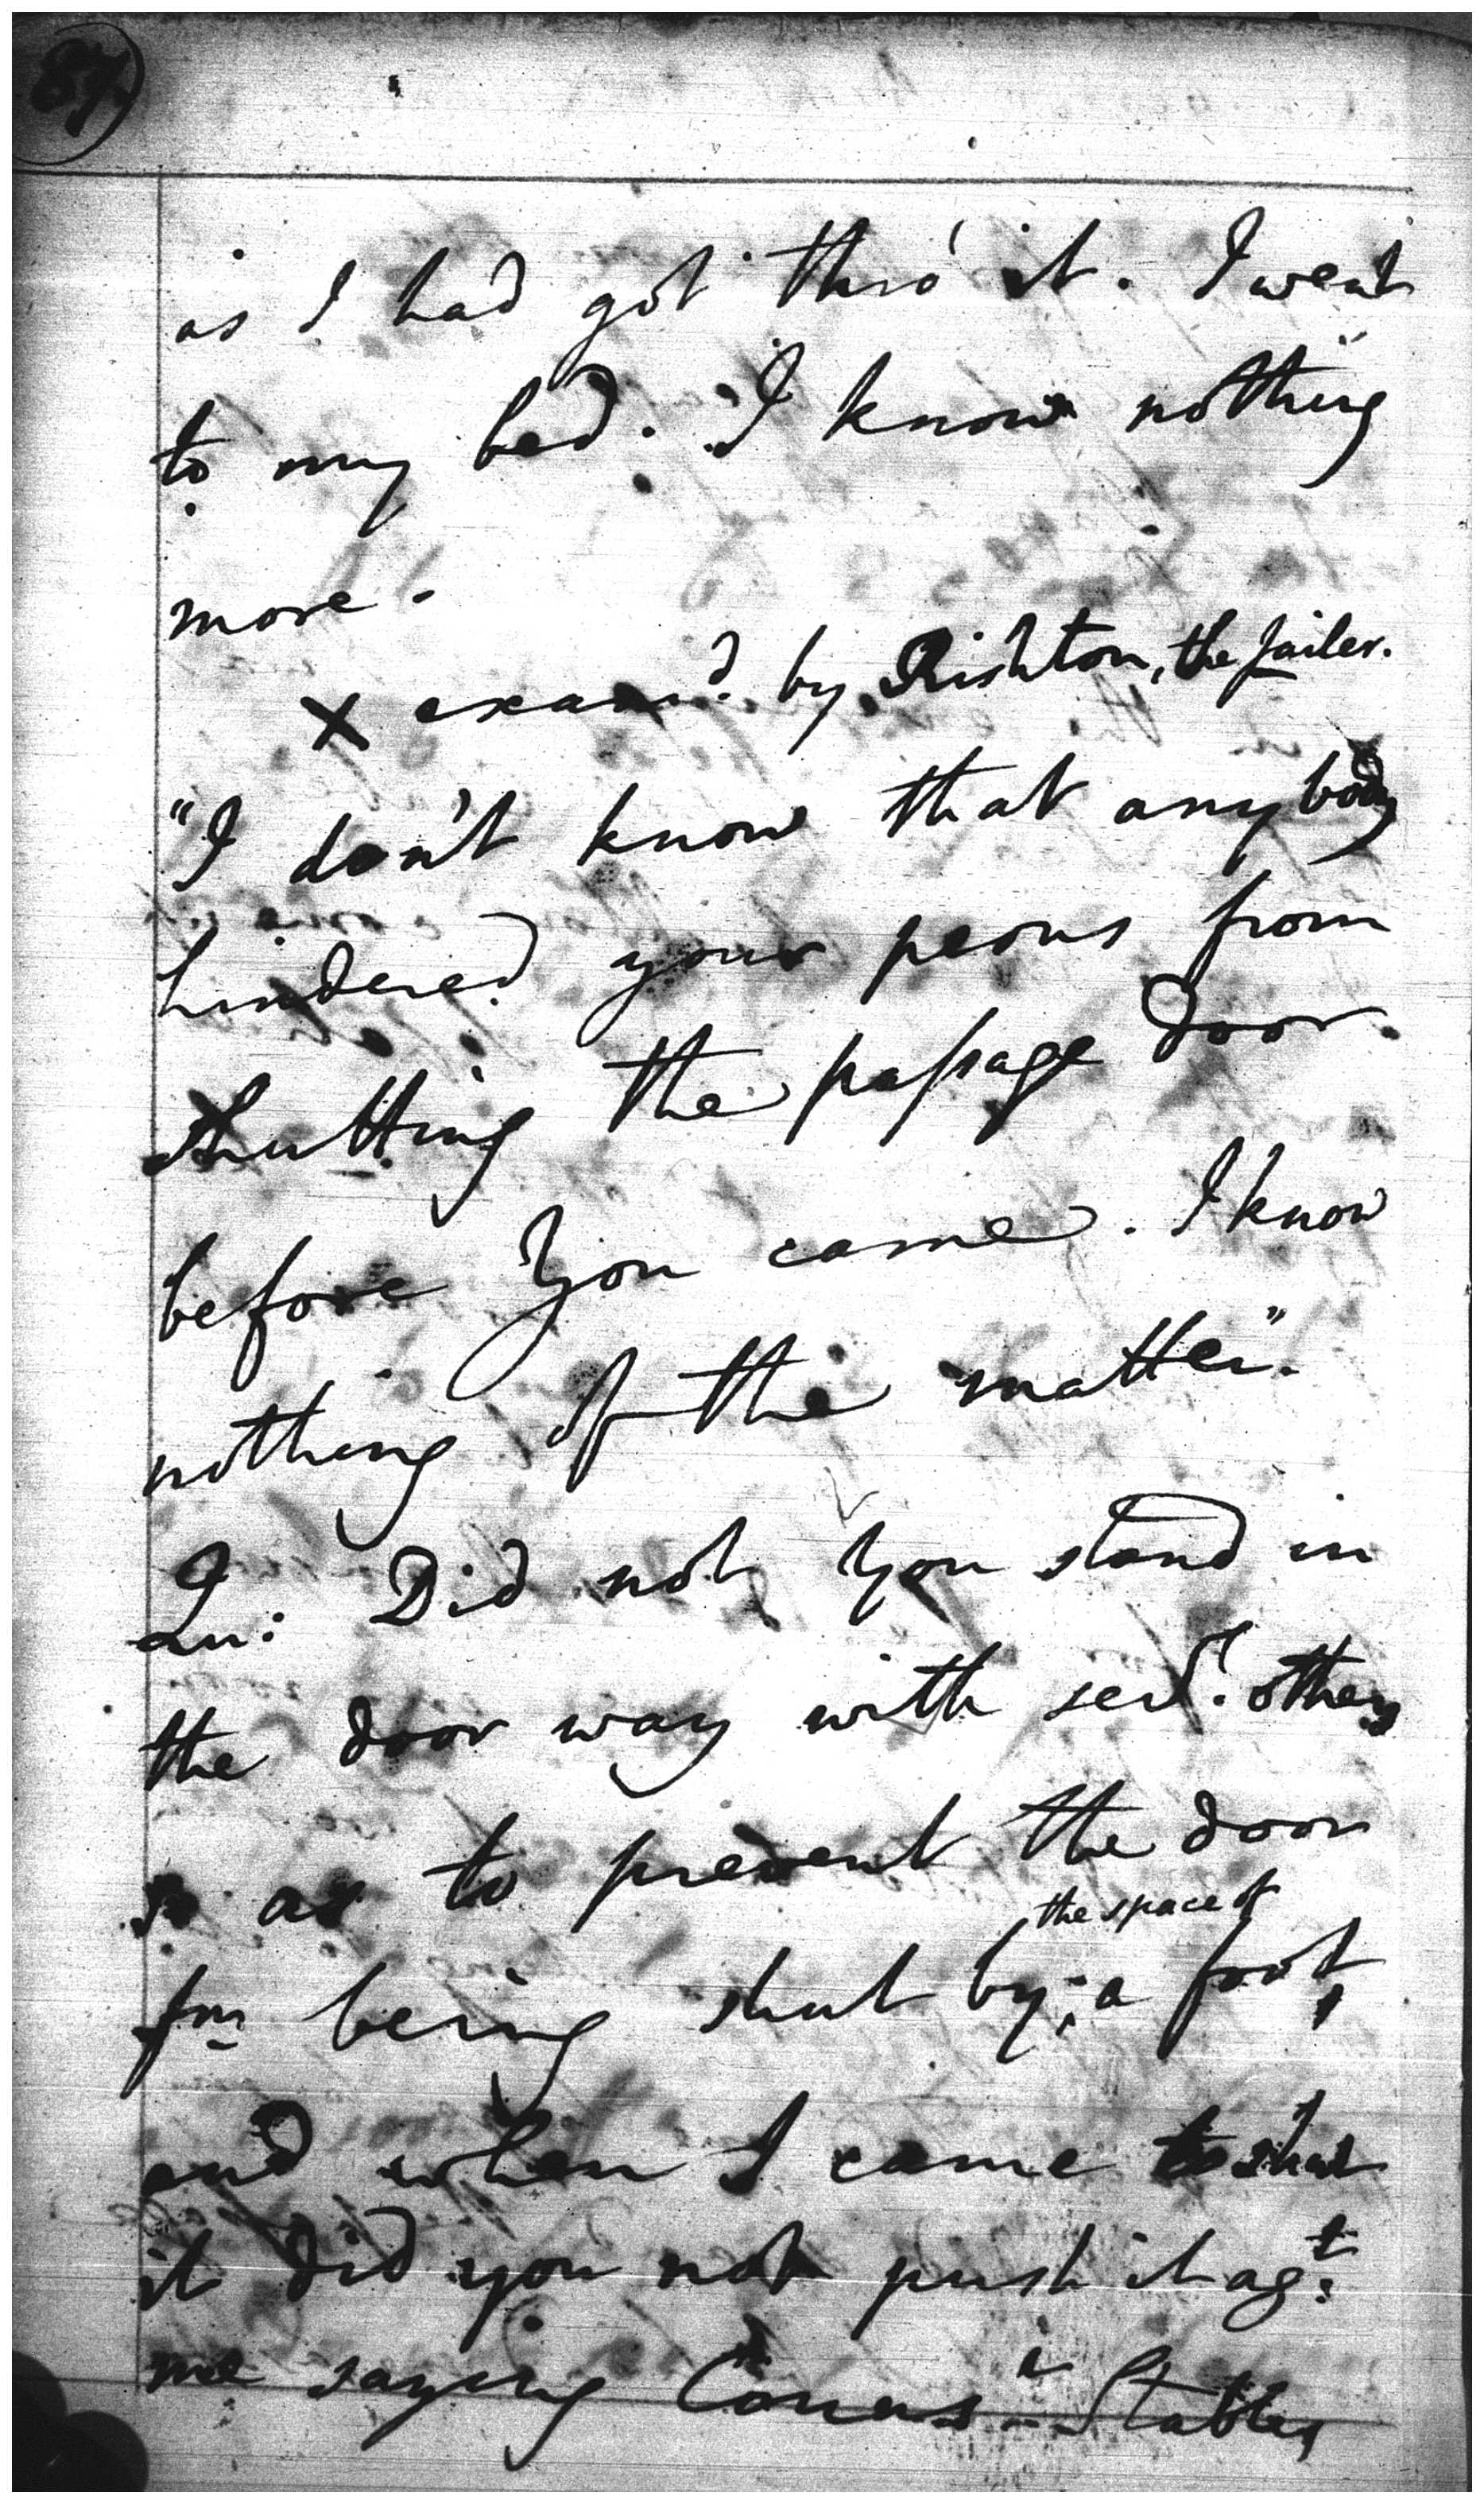 87
as I had got thro' it. I went
to my bed. I know nothing
more.
X examd. by Rishton, the Jailer.
"I don't know that anybody
hindered your peons from
shutting the passage door
before you came. I know
nothing of the matter".
Qu: Did not you stand in
the door way with sevl. others
so as to prevent the door
fm being shut by, the space of a foot,
and when I came to shut
it did you not push it agt.
me saying